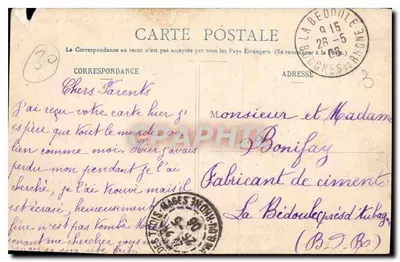 CARTE POSTALE
La Correspondance au recto n'est pas acceptée par tous les Pays Étrangers (Se renseigner à la Poste).
CORRESPONDANCE
ADRESSE
LA BÉDOULE
9 15
26-5
06
BOUCHES DU RHONE
30
3
Chers Parents
J'ai reçu votre carte hier j'es
père que tout le monde va
bien comme moi. Hier j'avais
perdu mon pendant je l'ai
cherché, je l'ai trouvé mais il
est écrasé, heureusement
n'est pas tombé
me chercher
Monsieur et Madame
Bonifay
Fabricant de ciments
La Bédoule près d'Aubagne
(B-D-R)